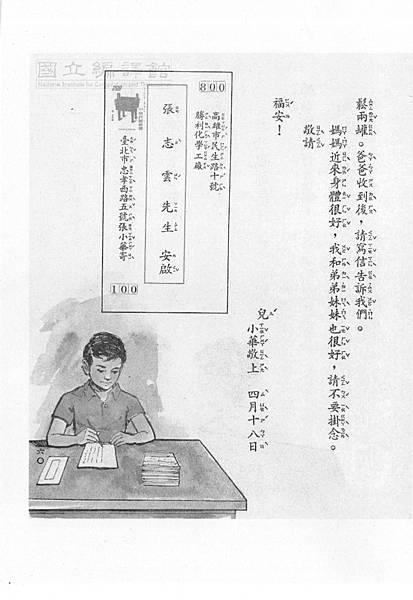 鬆兩罐。爸爸收到後，請寫信告訴我們。
媽媽近來身體很好，我和弟弟妹妹也很好，請不要掛念。
敬請
福安！
兒
小華敬上　四月十八日
800
高雄市民生路十號
勝利化學工廠
張志雲先生　安啟
臺北市忠孝西路五號張小華寄
100
國立編譯館
六〇